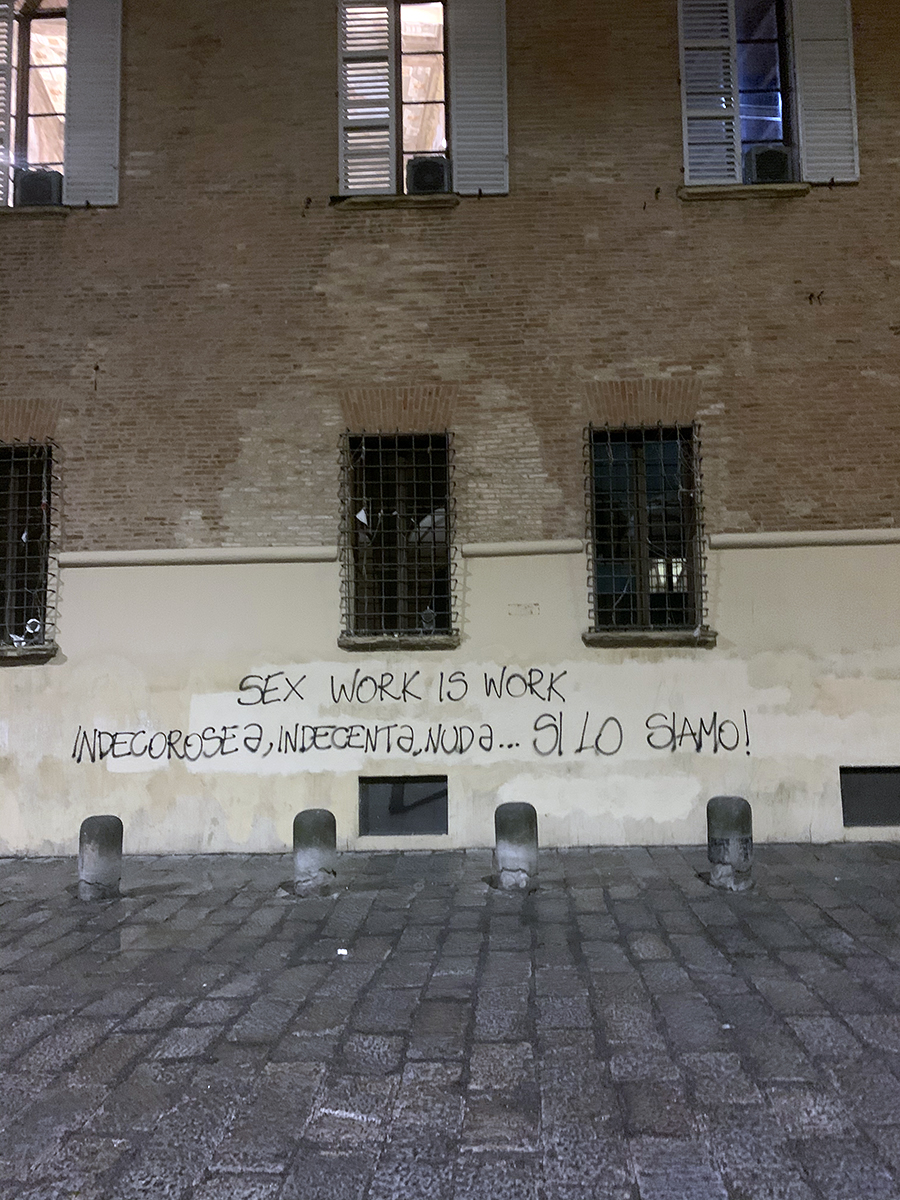 SEX WORK IS WORK
INDECOROSEƏ, INDECENTƏ, NUDƏ... SI LO SIAMO!